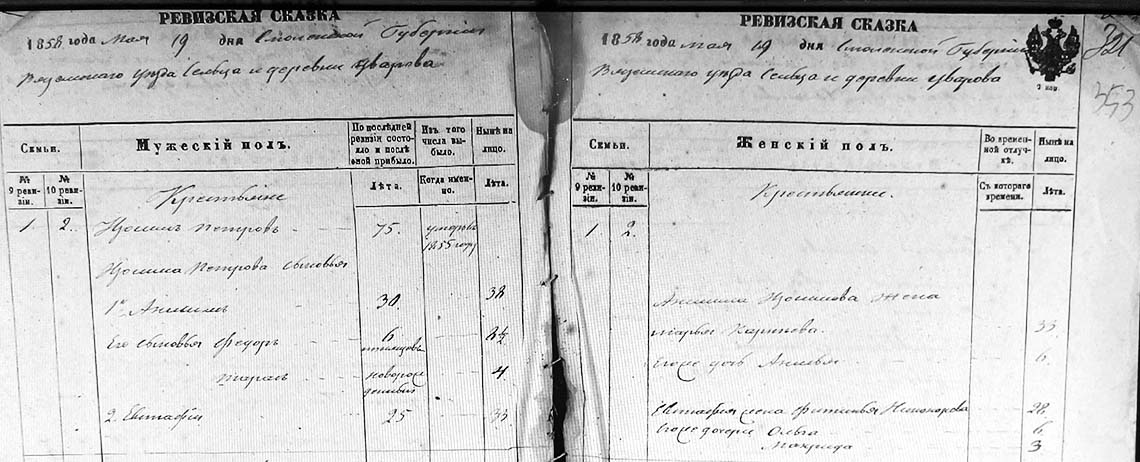 РЕВИЗСКАЯ СКАЗКА
1858 года мая 19 дня Смоленской Губернии
Вяземскаго уезда Сельца и деревни Уварова
Семьи.
Мужескій полъ.
По последней ревизіи состояло и после оной прибыло.
Изъ того числа выбыло.
Ныне на лицо.
№ 9 ревизіи.
№ 10 ревизіи.
Лѣта.
Когда именно.
Лѣта.
Крестьяне
1 2. Петровъ 75. умеръ 1855 году
Петрова сыновья
1й 30. 38
Его сыновья Федоръ 6 месяцовъ 8½
Тарасъ новорожденный 4
2. Евстафій 25 33
РЕВИЗСКАЯ СКАЗКА
1858 года мая 19 дня Смоленской Губерніи
Вяземскаго уезда Сельца и деревни Уварова
321
353
7 коп.
Семьи.
Женскій полъ.
Во временной отлучкѣ.
Нынѣ на лицо.
№ 9 ревизіи.
№ 10 ревизіи.
Съ котораго времени.
Лѣта.
Крестьянки.
1 2.
жена
Марья 33
Егоже дочь 6
Евстафія жена 28
Егоже дочери Ольга 6
3